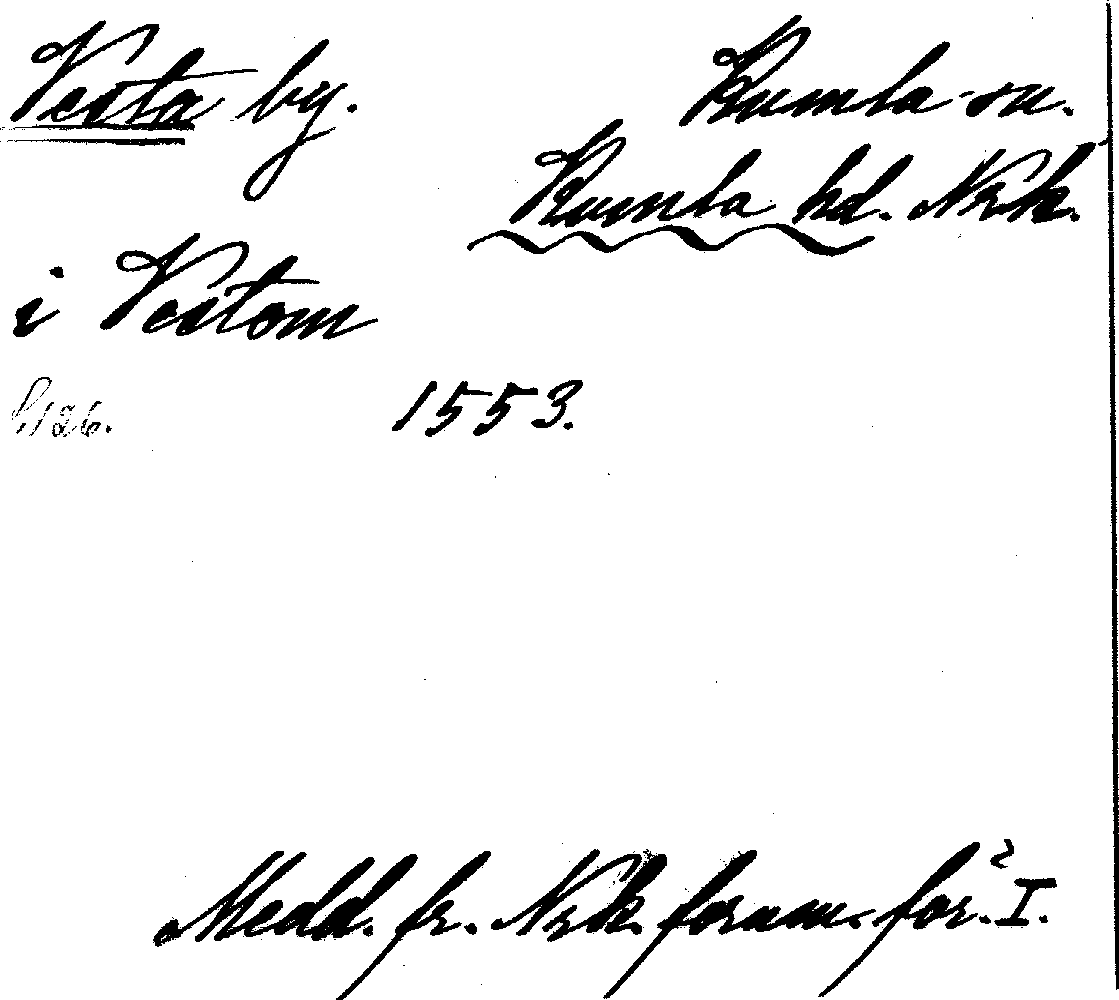 Vesta by.
Kumla sn.
Kumla hd. Nrk.
i Vestom
S. 126.
1553.
Medd. fr. Nrk. fornm. för. I.